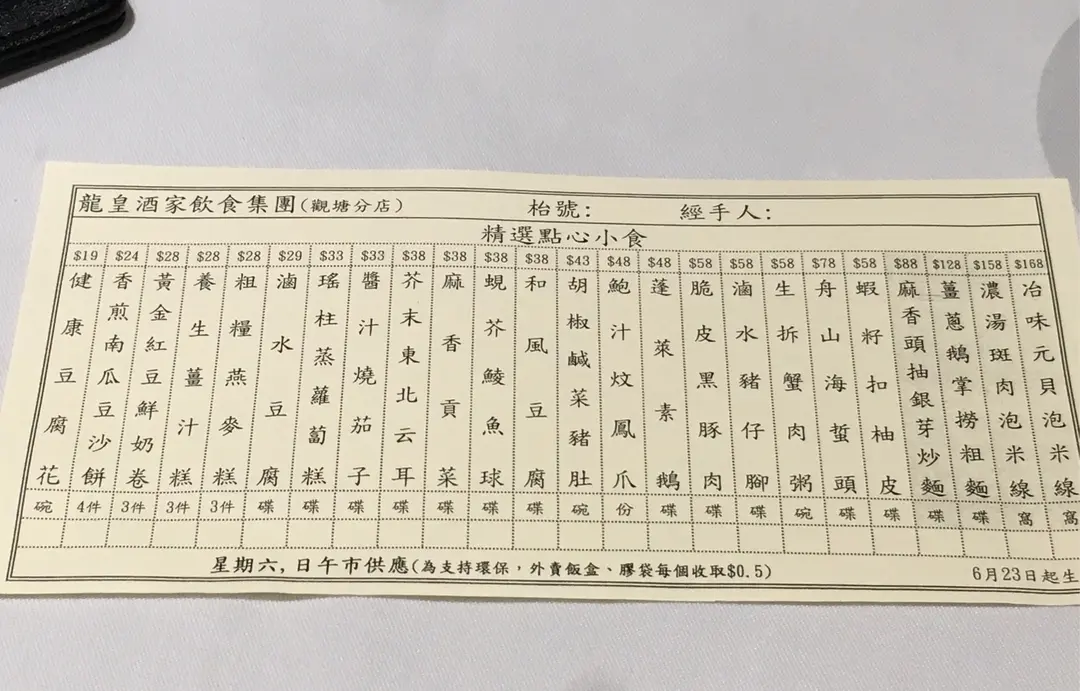 龍皇酒家飲食集團(觀塘分店) 枱號: 經手人:
精選點心小食
$19 健康豆腐花 碗
$24 香煎南瓜豆沙餅 4件
$28 黃金紅豆鮮奶卷 3件
$28 養生薑汁糕 3件
$28 粗糧燕麥糕 3件
$29 滷水豆腐 碟
$33 瑤柱蒸蘿蔔糕 碟
$33 醬汁燒茄子 碟
$38 芥末東北云耳 碟
$38 麻香貢菜 碟
$38 蜆芥鯪魚球 碟
$38 和風豆腐 碟
$43 胡椒鹹菜豬肚 碗
$48 鮑汁炆鳳爪 份
$48 蓬萊素鵝 碟
$58 脆皮黑豚肉 碟
$58 滷水豬仔腳 碟
$58 生拆蟹肉粥 碗
$78 舟山海蜇頭 碟
$58 蝦籽扣柚皮 碟
$88 麻香頭抽銀芽炒麵 碟
$128 薑蔥鵝掌撈粗麵 碟
$158 濃湯斑肉泡米線 窩
$168 冶味元貝泡米線 窩
星期六,日午市供應(為支持環保，外賣飯盒、膠袋每個收取$0.5) 6月23日起生